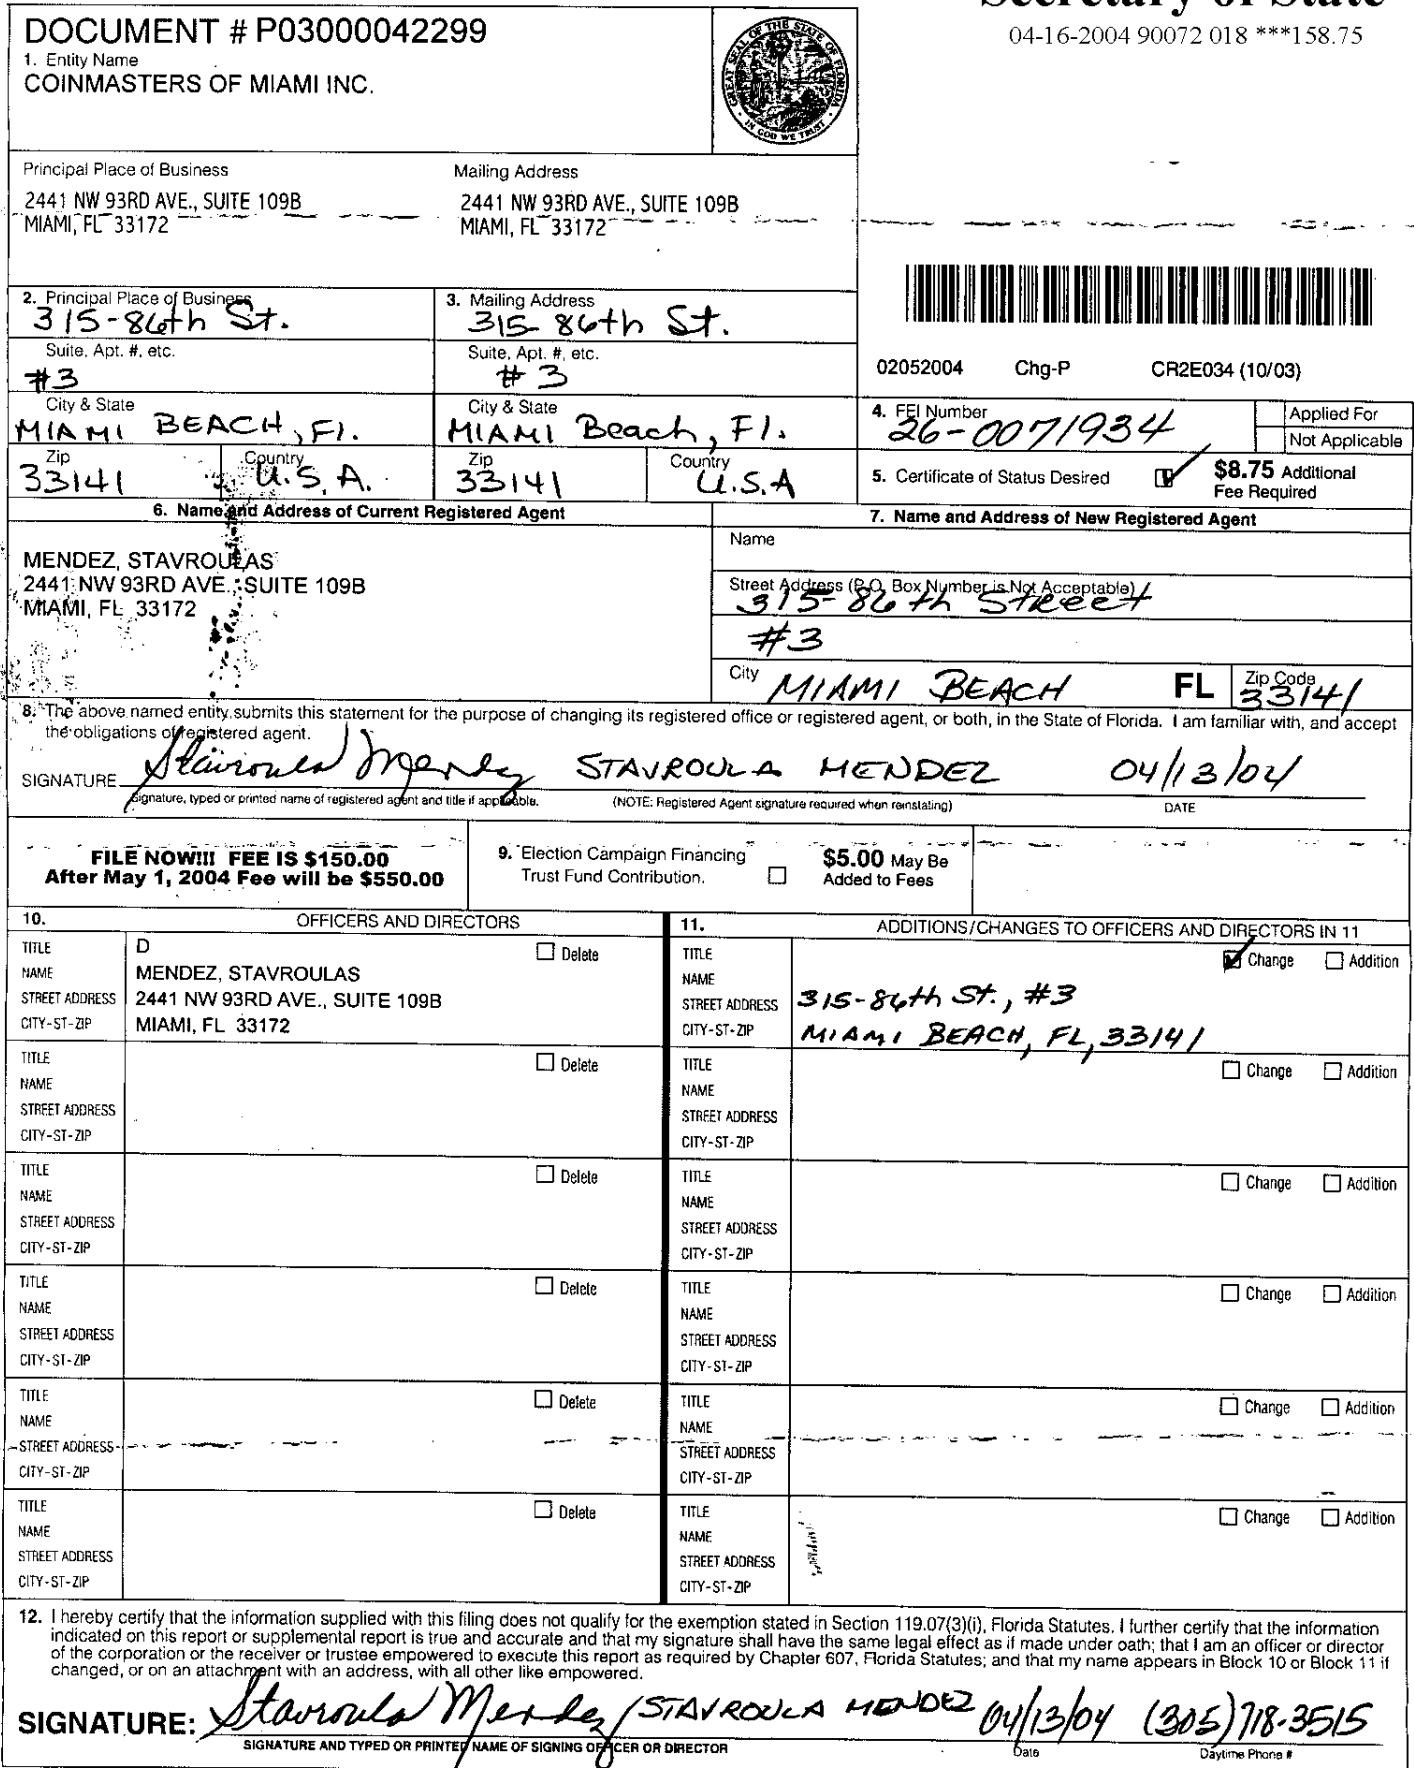 Secretary of State
04-16-2004 90072 018 ***158.75
DOCUMENT # P03000042299
1. Entity Name
COINMASTERS OF MIAMI INC.
GREAT SEAL OF THE STATE OF FLORIDA
IN GOD WE TRUST
Principal Place of Business
2441 NW 93RD AVE., SUITE 109B
MIAMI, FL 33172
Mailing Address
2441 NW 93RD AVE., SUITE 109B
MIAMI, FL 33172
2. Principal Place of Business
315-86th St.
3. Mailing Address
315-86th St.
Suite, Apt. #, etc.
#3
Suite, Apt. #, etc.
#3
02052004 Chg-P CR2E034 (10/03)
City & State
MIAMI BEACH, Fl.
City & State
MIAMI Beach, Fl.
4. FEI Number
26-0071934
Applied For
Not Applicable
Zip
33141
Country
U.S.A.
Zip
33141
Country
U.S.A
5. Certificate of Status Desired
$8.75 Additional
Fee Required
6. Name and Address of Current Registered Agent
MENDEZ, STAVROULAS
2441 NW 93RD AVE., SUITE 109B
MIAMI, FL 33172
7. Name and Address of New Registered Agent
Name
Street Address (P.O. Box Number is Not Acceptable)
315-86th Street
#3
City MIAMI BEACH FL Zip Code 33141
8. The above named entity submits this statement for the purpose of changing its registered office or registered agent, or both, in the State of Florida. I am familiar with, and accept
the obligations of registered agent.
SIGNATURE Stavroula Mendez STAVROULA MENDEZ 04/13/04
Signature, typed or printed name of registered agent and title if applicable. (NOTE: Registered Agent signature required when reinstating) DATE
FILE NOW!!! FEE IS $150.00
After May 1, 2004 Fee will be $550.00
9. Election Campaign Financing
Trust Fund Contribution.
$5.00 May Be
Added to Fees
10. OFFICERS AND DIRECTORS
11. ADDITIONS/CHANGES TO OFFICERS AND DIRECTORS IN 11
TITLE D Delete
NAME MENDEZ, STAVROULAS
STREET ADDRESS 2441 NW 93RD AVE., SUITE 109B
CITY-ST-ZIP MIAMI, FL 33172
TITLE Change Addition
NAME
STREET ADDRESS 315-86th St., #3
CITY-ST-ZIP MIAMI BEACH, FL, 33141
TITLE Delete
NAME
STREET ADDRESS
CITY-ST-ZIP
TITLE Change Addition
NAME
STREET ADDRESS
CITY-ST-ZIP
TITLE Delete
NAME
STREET ADDRESS
CITY-ST-ZIP
TITLE Change Addition
NAME
STREET ADDRESS
CITY-ST-ZIP
TITLE Delete
NAME
STREET ADDRESS
CITY-ST-ZIP
TITLE Change Addition
NAME
STREET ADDRESS
CITY-ST-ZIP
TITLE Delete
NAME
STREET ADDRESS
CITY-ST-ZIP
TITLE Change Addition
NAME
STREET ADDRESS
CITY-ST-ZIP
TITLE Delete
NAME
STREET ADDRESS
CITY-ST-ZIP
TITLE Change Addition
NAME
STREET ADDRESS
CITY-ST-ZIP
12. I hereby certify that the information supplied with this filing does not qualify for the exemption stated in Section 119.07(3)(i), Florida Statutes. I further certify that the information
indicated on this report or supplemental report is true and accurate and that my signature shall have the same legal effect as if made under oath; that I am an officer or director
of the corporation or the receiver or trustee empowered to execute this report as required by Chapter 607, Florida Statutes; and that my name appears in Block 10 or Block 11 if
changed, or on an attachment with an address, with all other like empowered.
SIGNATURE: Stavroula Mendez / STAVROULA MENDEZ 04/13/04 (305) 718-3515
SIGNATURE AND TYPED OR PRINTED NAME OF SIGNING OFFICER OR DIRECTOR Date Daytime Phone #